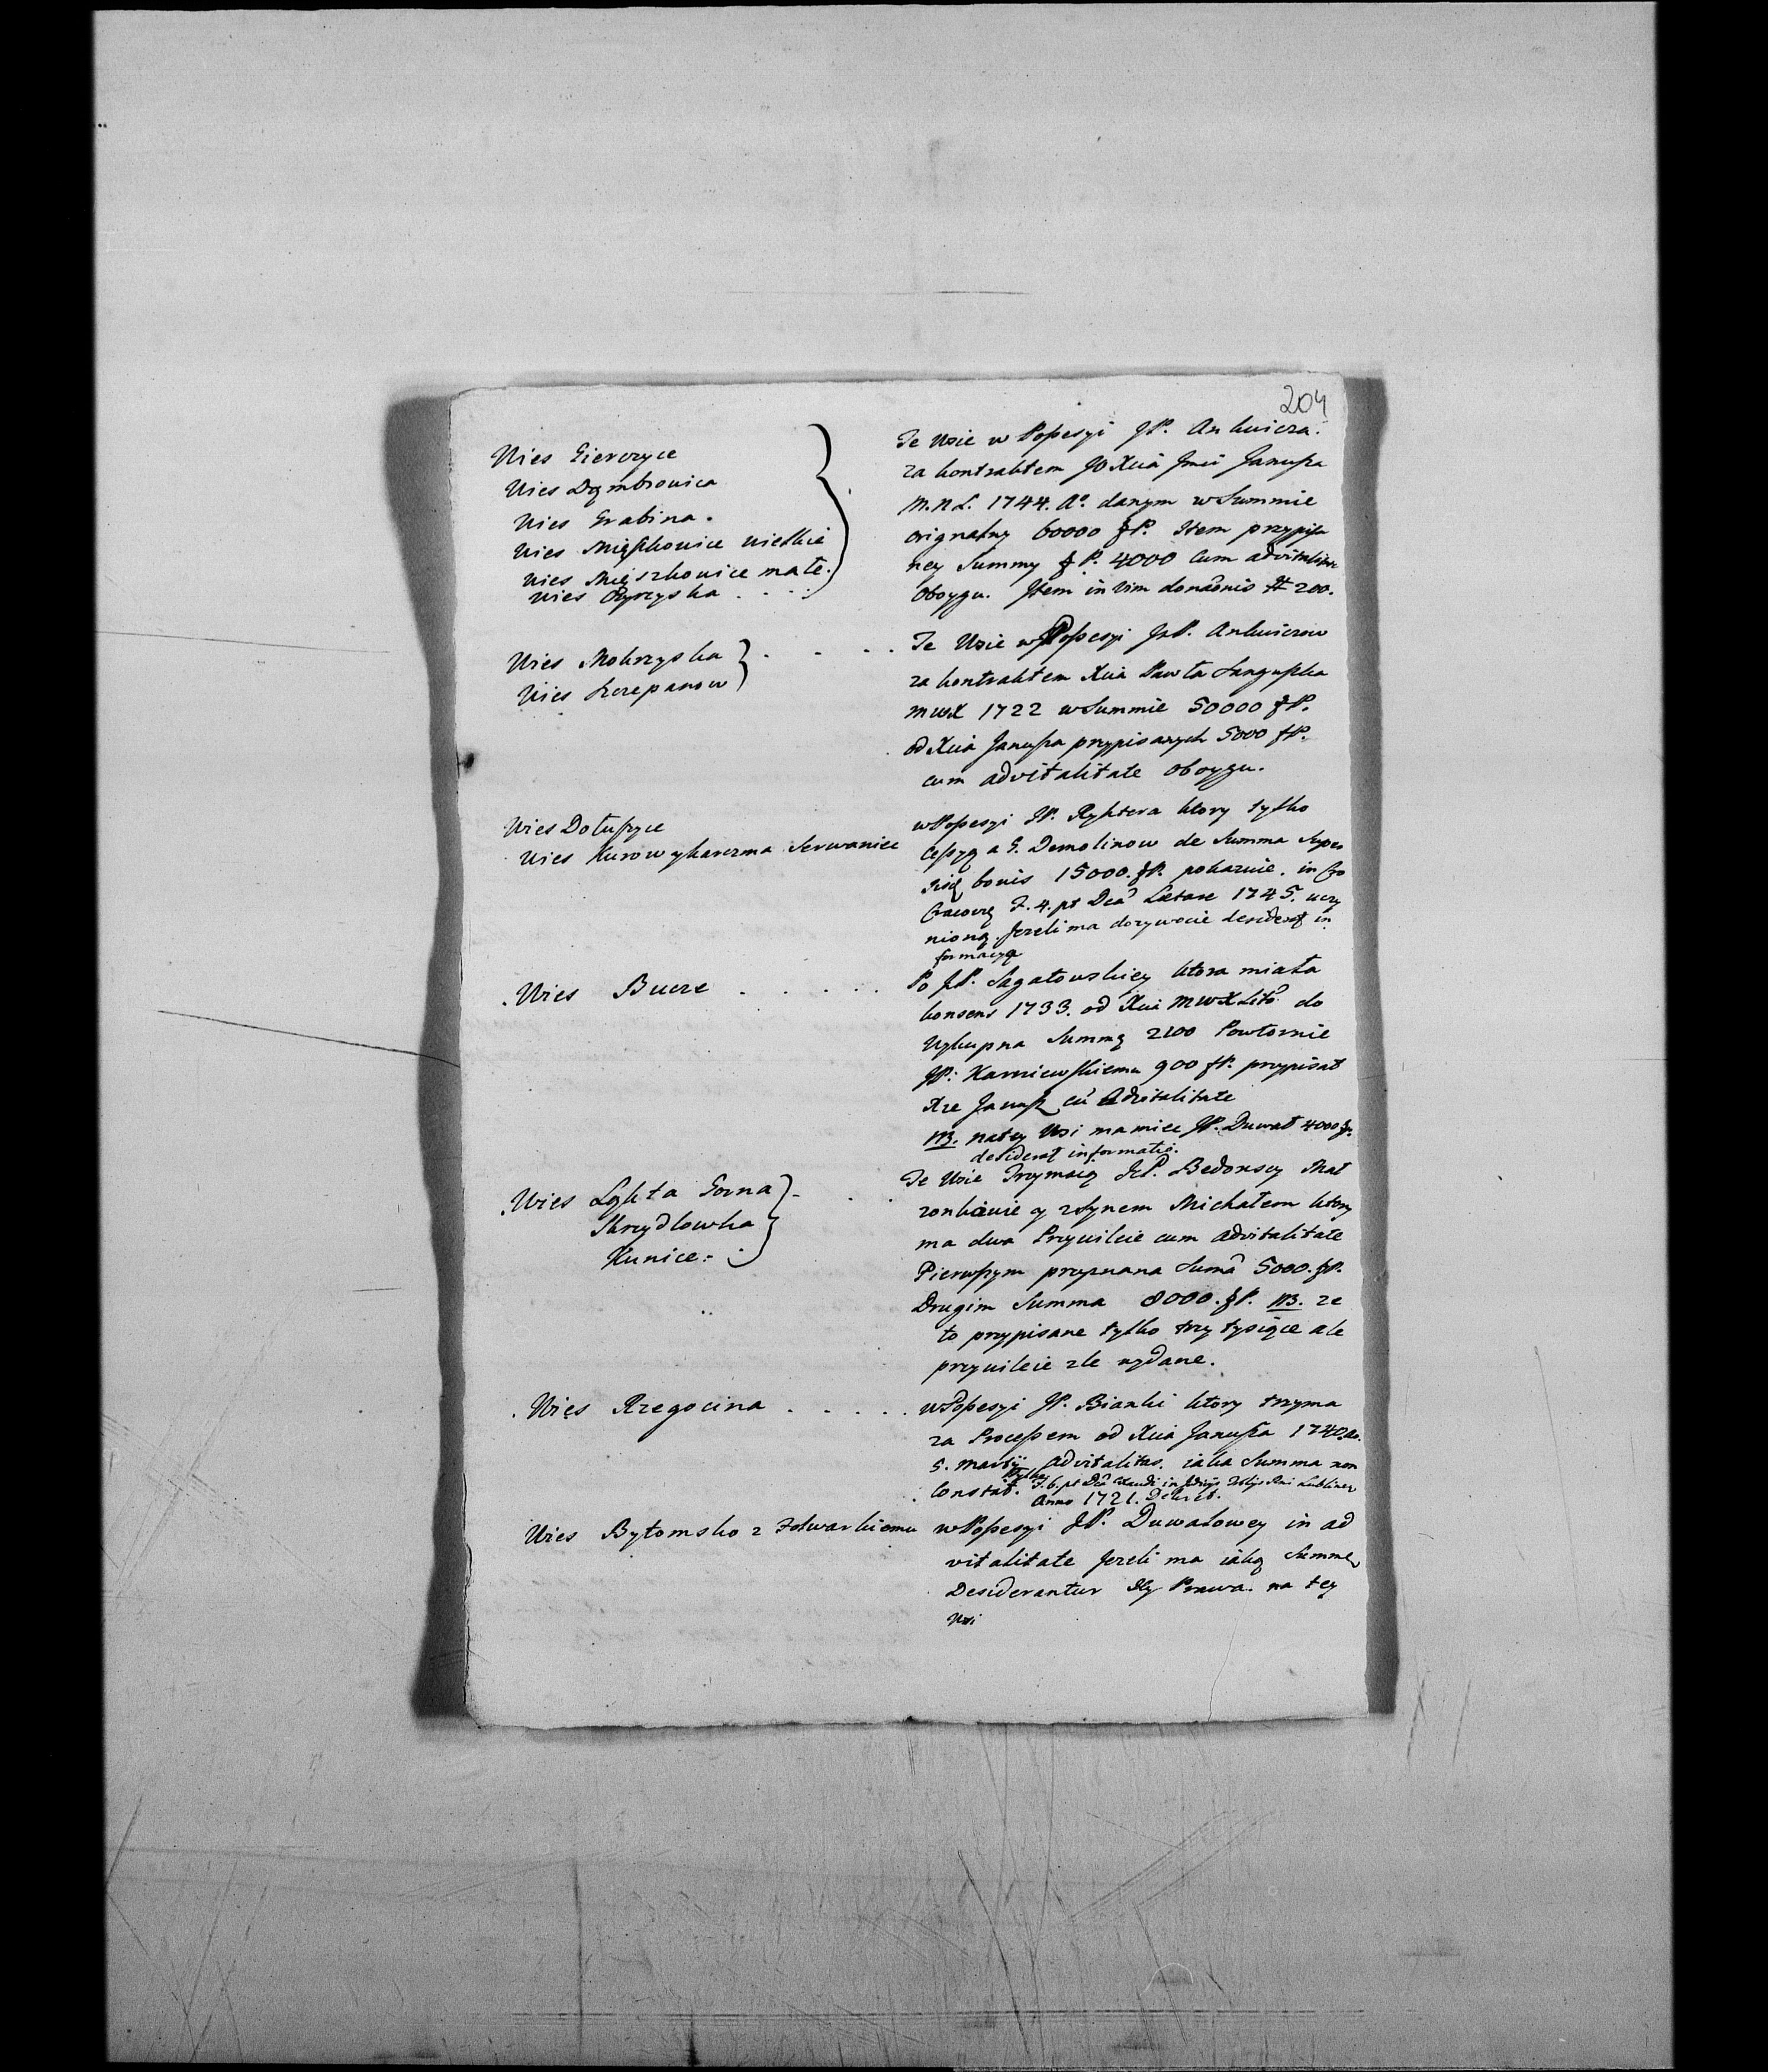 204
Wies Gierczyce
Wies Dąmbrowica
Wies Grabina.
Wies Mięszkowice wielkie
Wies Mięszkowice małe.
Wies Okrzyska . . . .
Te Wsie w Possesyi JP. Ankwicza.
za kontraktem JO Xcia Jmci Janusza
M. N. L. 1744. Aº. danym w Summie
orignalny 60000 fP. Item przypisa
ney Summy fP. 4000 cum advitalitate
oboygu. Item in vim donaōnis # 200.
Wies Mokrzyska } . - . .
Wies Szczepanow
Te Wsie w Possesyi JP. Ankwiczow
za kontraktem Xcia Pawła Sanguszka
MWX 1722 w Summie 50000 fP.
od Xcia Janusza przypisanych 5000 fP.
cum advitalitate oboygu.
Wies Dołuszyce
Wies Kurow y karczma Serwaniec
w Possesyi JP. Ryhtera ktory tylko
Cessyą a G. Domolinow de Summa Super
bonis 15000. fP. pokazuie. in
F. 4. pt Dcā Laetare 1745. uczy
nioną. Jezeli ma dozywocie desiderat in
formacya
Wies Bucze . . . . .
Po JP. Sagatowskiey ktora miała
konsens 1733. od Xcia MWXLitō do
Wykupna Summą 2100 Powtornie
JP: Karniewskiemu 900 fP. przypisał
Xze Janusz cū Advitalitate
NB. na tey Wsi mamice JP. Duwał 4000 fP.
desiderat informatio.
Wies Łąkta Gorna } - .
Skrzydlowka
Kunice: .
Te Wsie Trzymaią JP. Bedonscy Mał
zonkowie y z Synem Michałem ktory
ma dwa Przywileie cum advitalitate
Pierwszym przyznana Sumā 5000. fP.
Drugim Summa 8000. fP. NB. ze
to przypisane tylko trzy tysiące ale
przywileie zle wydane.
Wies Rzegocina . . . . .
w Possesyi JP. Bianki ktory trzyma
za Processem od Xcia Janusza 1740. ao.
5. Martij advitalitas. iaka Summa non
Constat. F. 6. pt Dcā Exaudi in Lublinen
Anno 1721. Decret.
Wies Bytomsko z Folwarkiem
w Possesyi JP. Duwałowey in ad
vitalitate Jezeli ma iaką Summę
Desiderantur Jey Prawa. na tey
Wsi